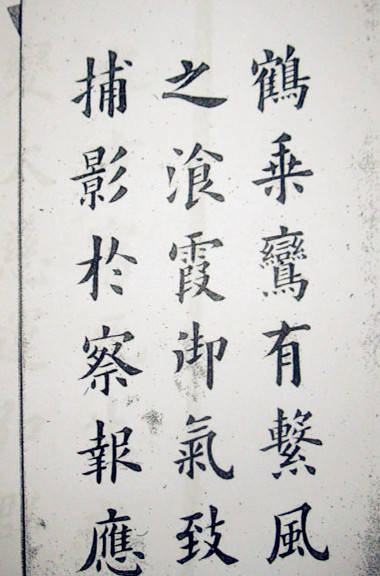 鶴乗鸞有繫風
之湌霞御氣致
捕影於察報應